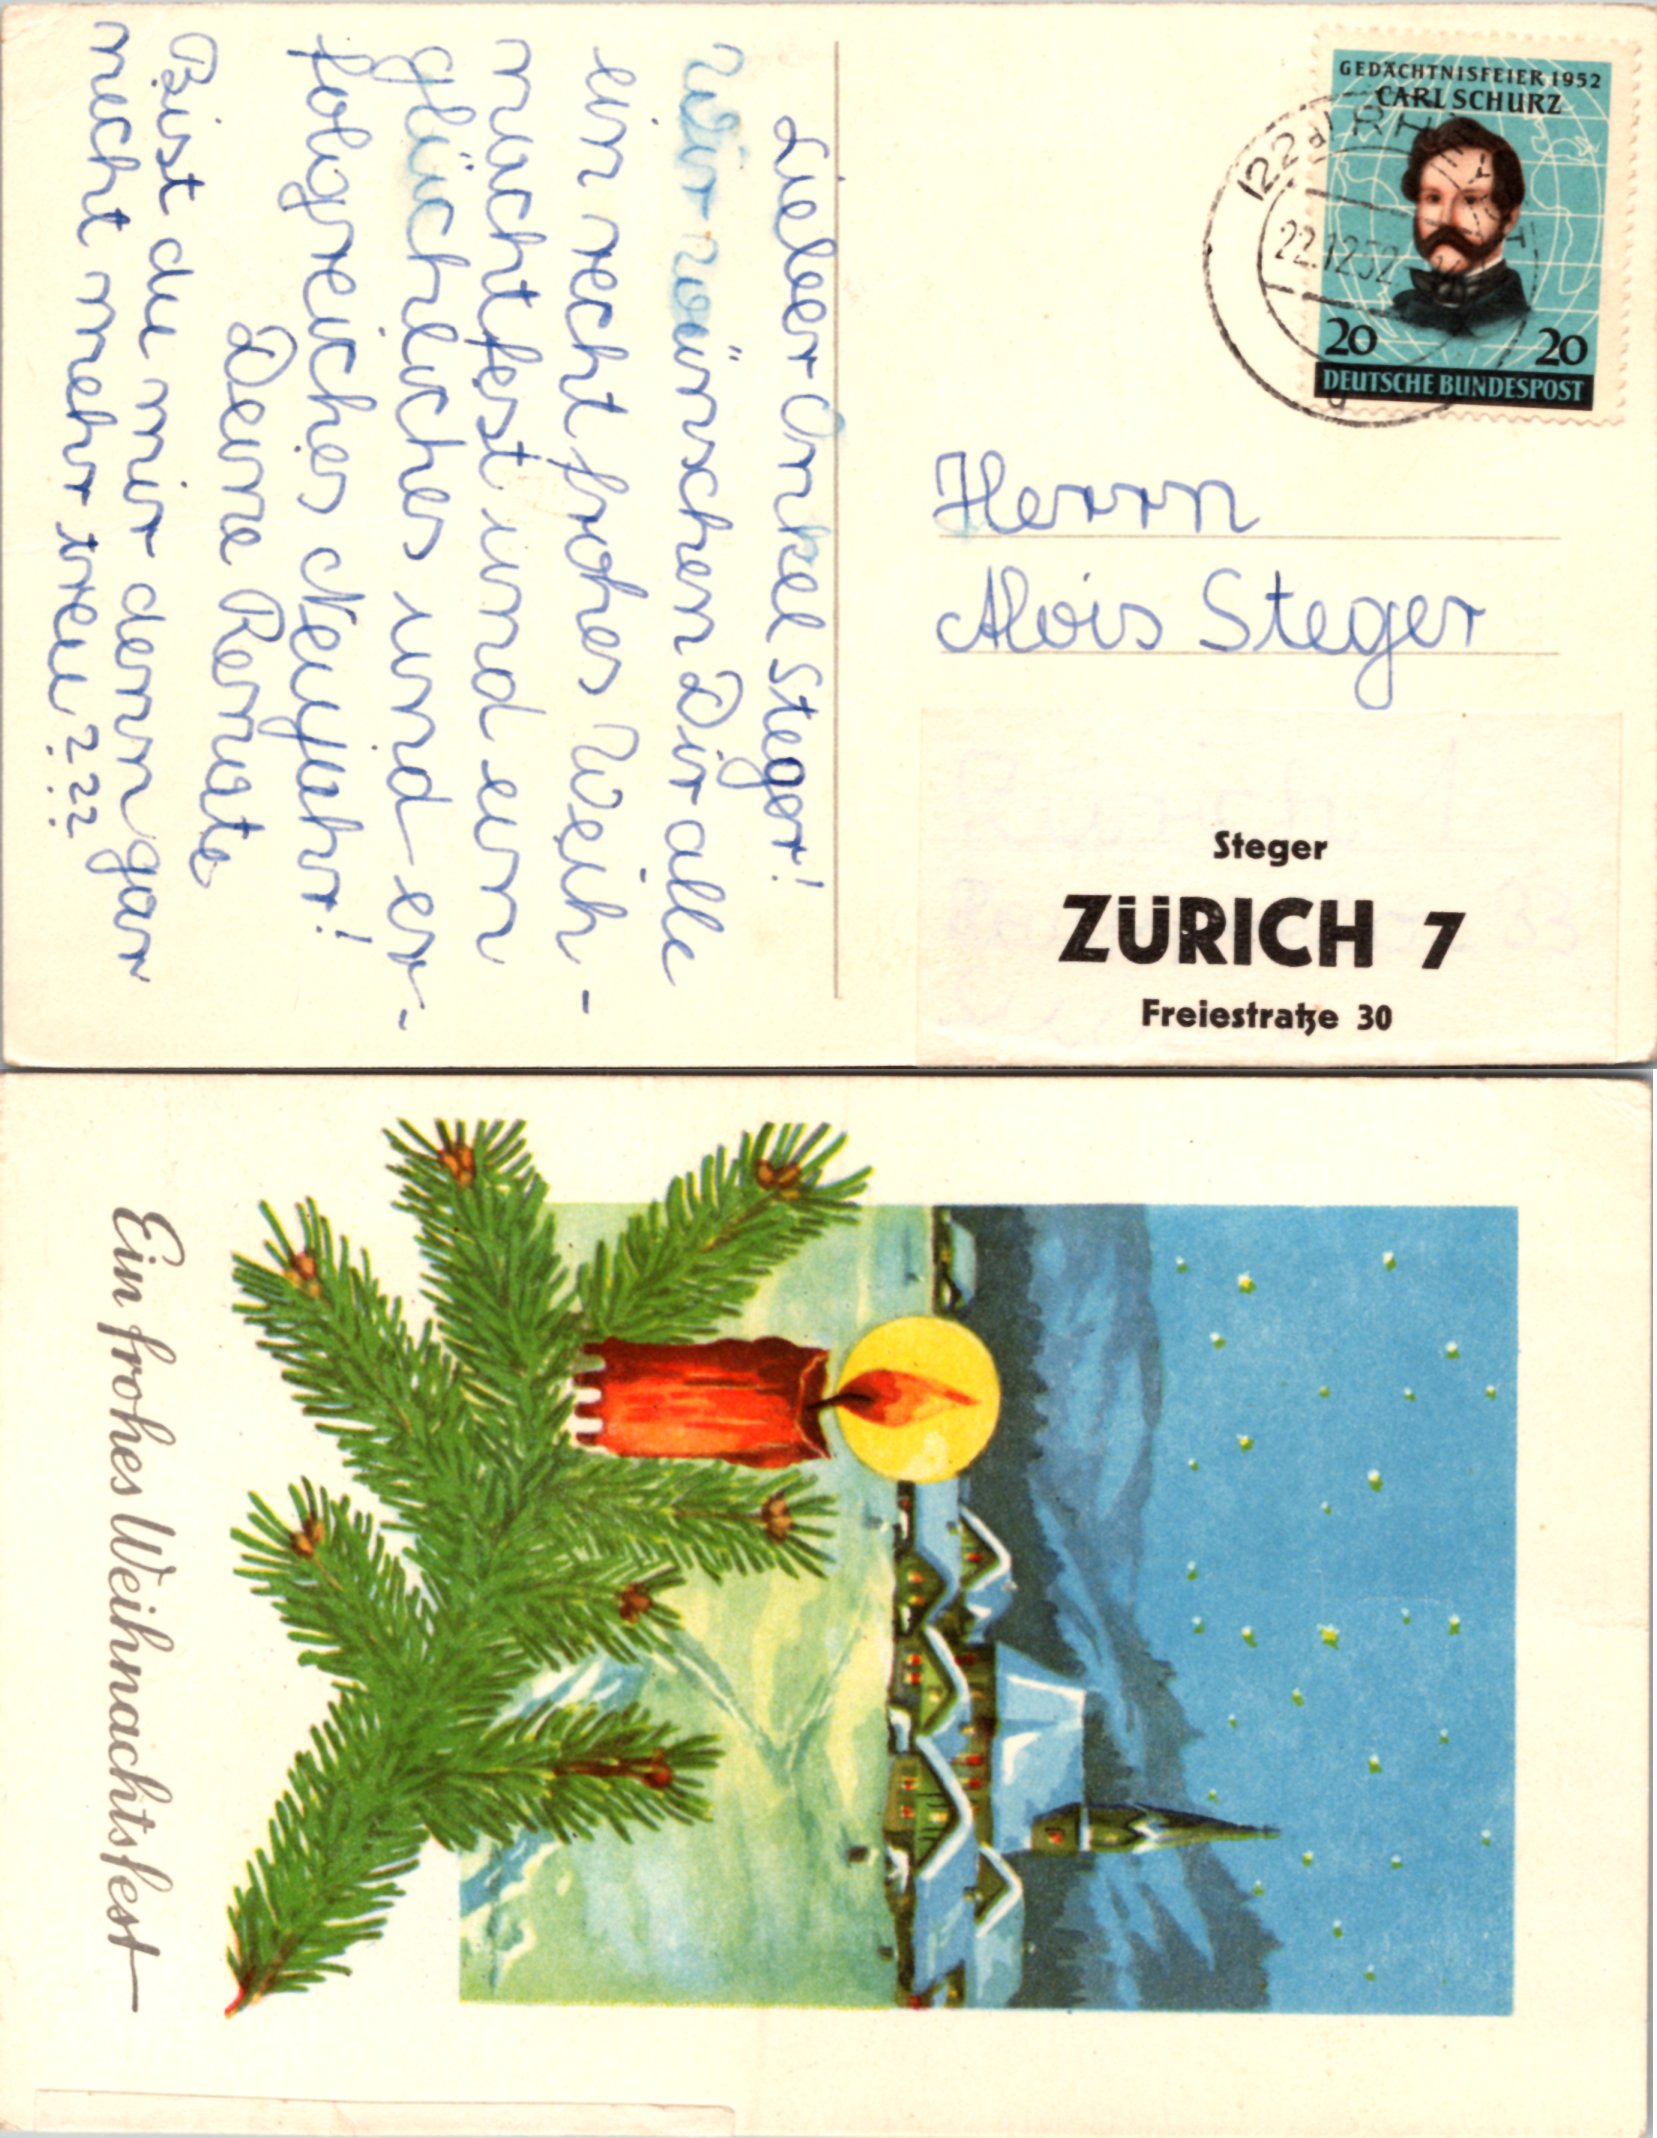 Lieber Onkel Steger!
Wir wünschen Dir alle
ein recht frohes Weih-
nachtfest und ein
glückliches und er-
folgreiches Neujahr!
Deine Renate
Bist du mir denn gar
nicht mehr treu???
GEDÄCHTNISFEIER 1952
CARL SCHURZ
20 20
DEUTSCHE BUNDESPOST
22.12.52
Herrn
Alois Steger
Steger
ZÜRICH 7
Freiestraße 30
Ein frohes Weihnachtsfest